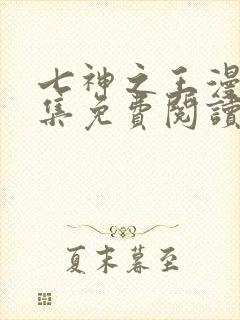 七神之王漫
集免費閱讀
夏末暮至